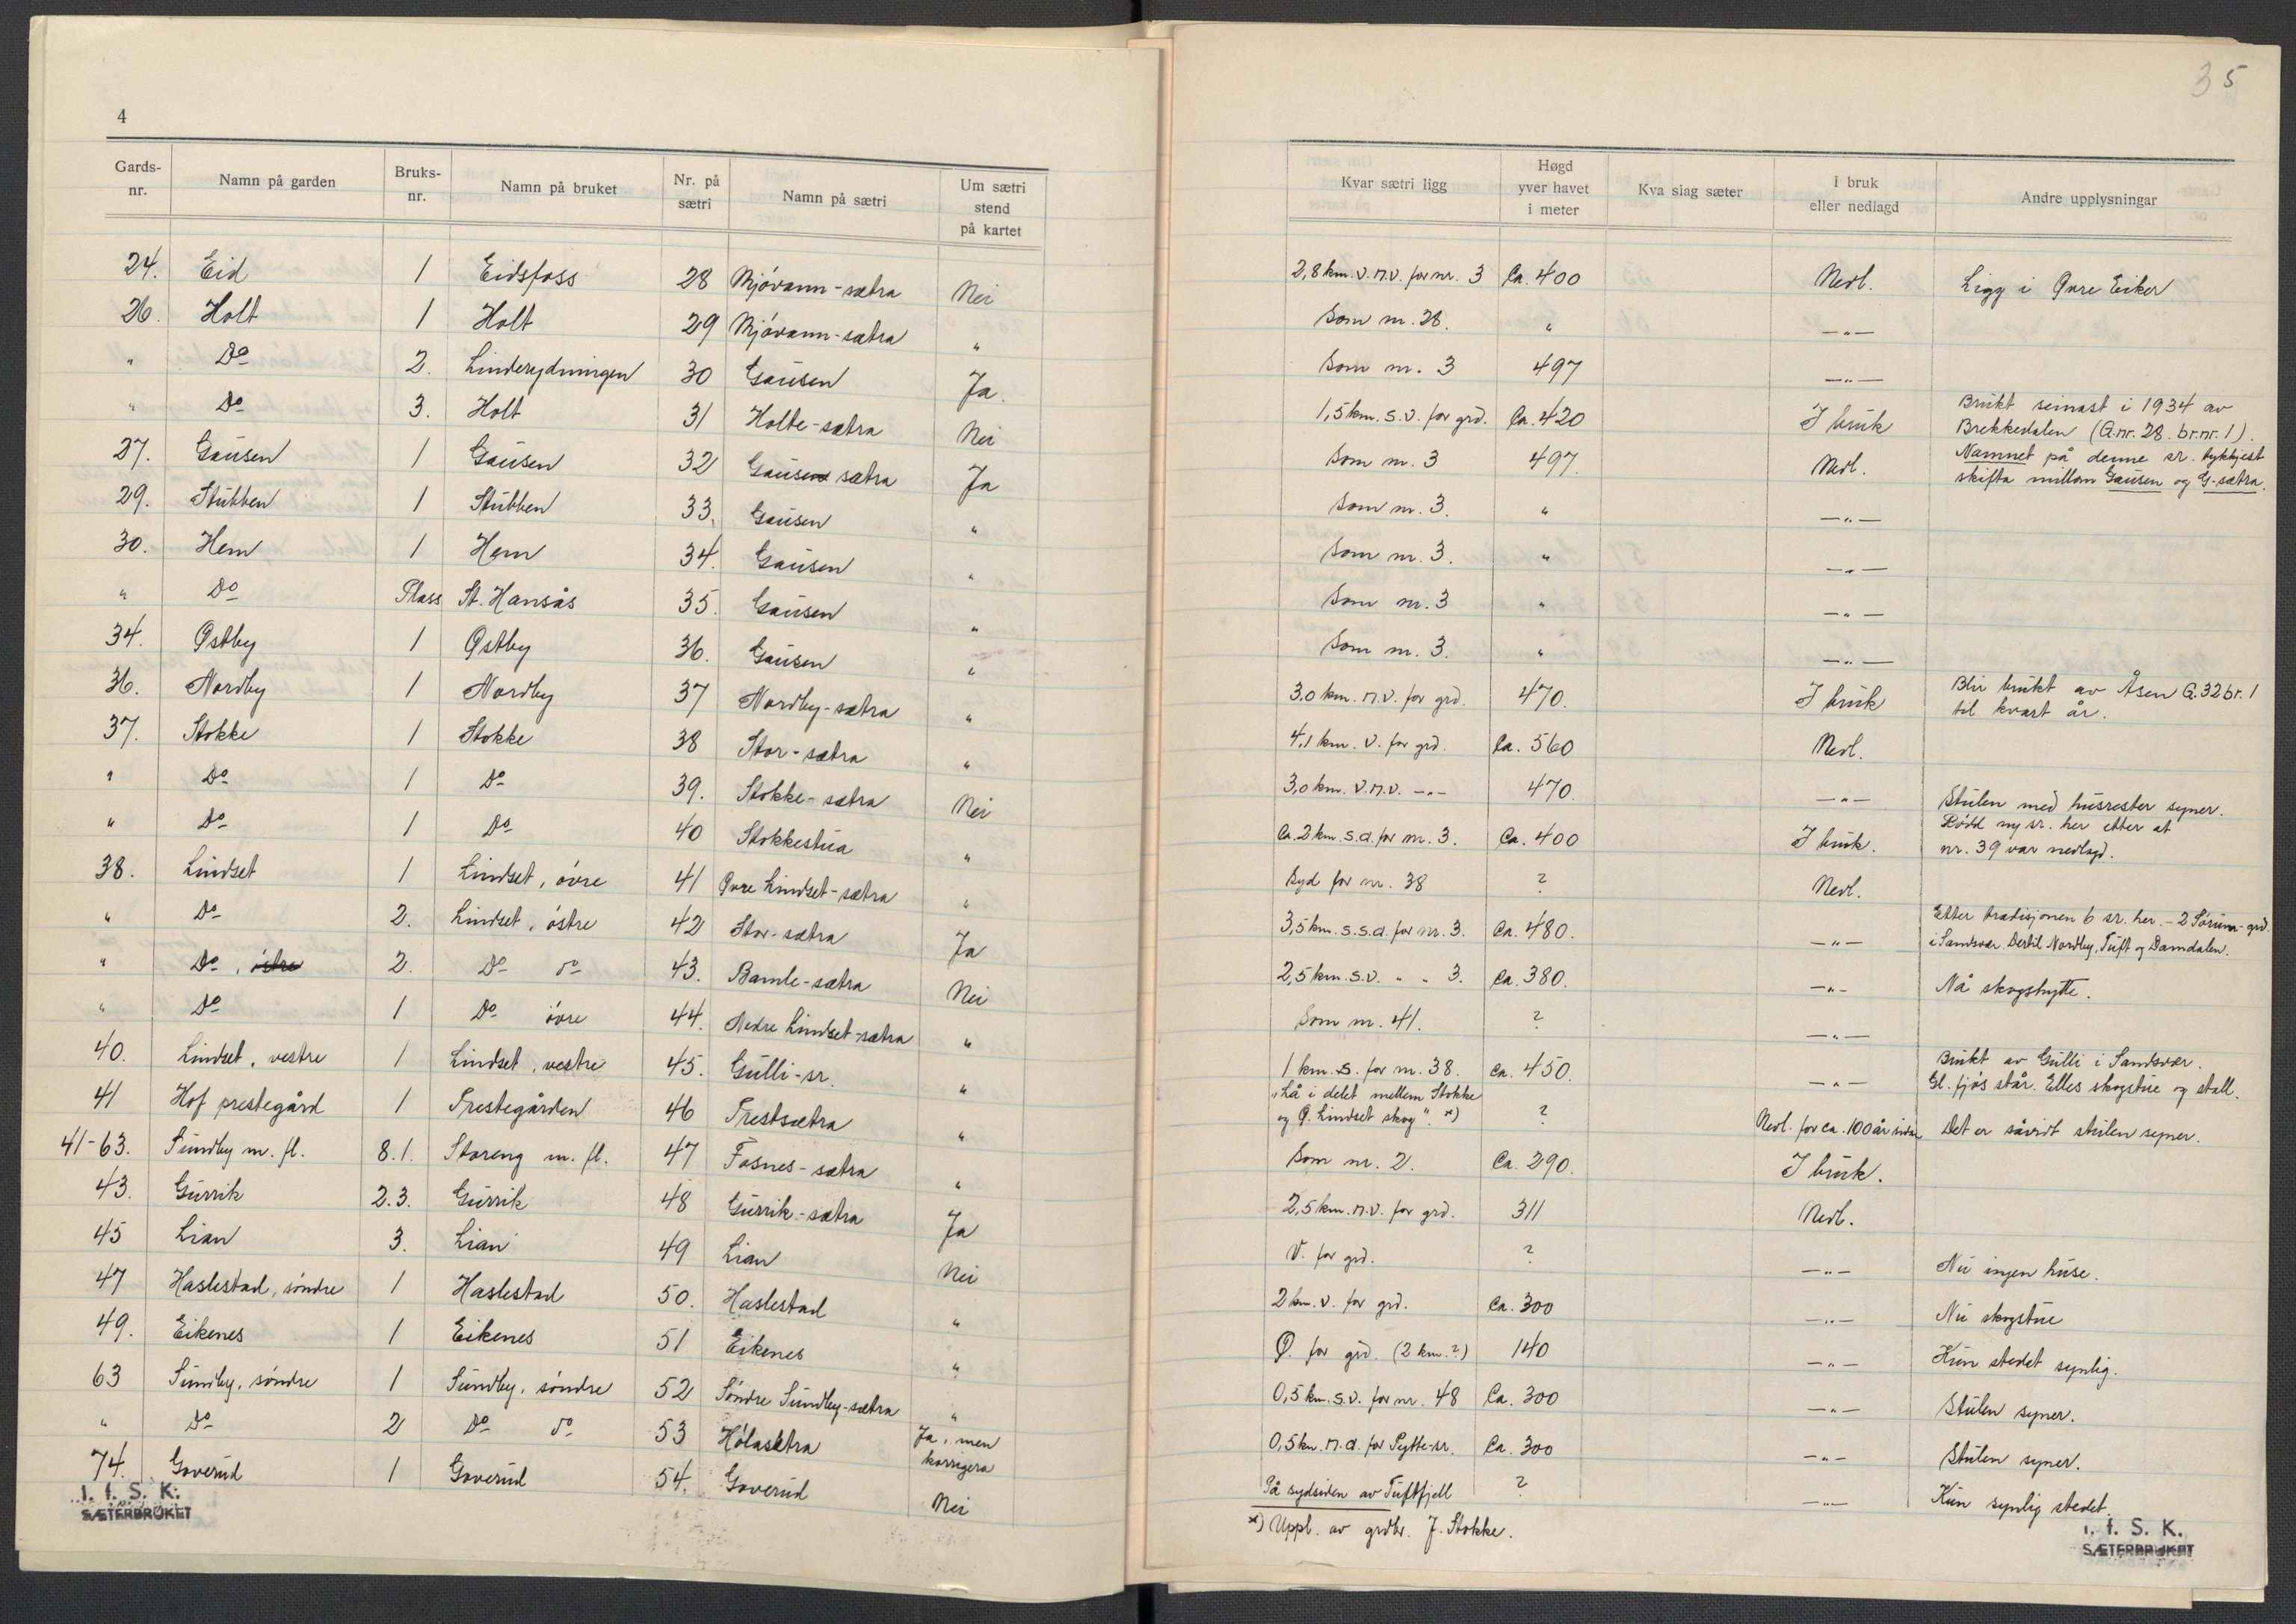 4
Gards-nr. Namn på garden Bruks-nr. Namn på bruket Nr. på sætri Namn på sætri Um sætri stend på kartet
24. Eid 1 Eidsfoss 28 Mjóvann-sætra Nei
26. Holt 1 Holt 29 Mjóvann-sætra "
" Do 2. Linderydningen 30 Gausen Ja.
" Do 3. Holt 31 Holte-sætra Nei
27. Gausen 1 Gausen 32 Gausen sætra Ja
29. Stubben 1 Stubben 33. Gausen "
30. Hem 1 Hem 34. Gausen "
" Do Plass St. Hansås 35. Gausen "
34. Østby 1 Østby 36. Gausen "
36. Nordby 1 Nordby 37 Nordby-sætra "
37. Stokke 1 Stokke 38 Stor-sætra "
" Do 1 Do 39. Stokke-sætra Nei
" Do 1 Do 40 Stokkestua "
38. Lindset 1 Lindset, óvre 41 Øvre Lindset-sætra "
" Do 2. Lindset, óstre 42 Stor-sætra Ja
" Do, óstre 2. Do do 43. Bamle-sætra Nei
" Do 1 Do óvre 44. Nedre Lindset-sætra "
40. Lindset, vestre 1 Lindset, vestre 45. Gulli-sr. "
41 Hof prestegård 1 Prestegården 46 Prestsætra "
41-63. Sundby m. fl. 8.1. Storeng m. fl. 47 Fosnes-sætra "
43. Gurrik 2.3. Gurrik 48 Gurrik-sætra Ja
45 Lian 3. Lian 49 Lian Nei
47 Haslestad, sóndre 1 Haslestad 50. Haslestad "
49. Eikenes 1 Eikenes 51 Eikenes "
63 Sundby, sóndre 1 Sundby, sóndre 52 Sóndre Sundby-sætra "
" Do 2 Do do 53 Hólasætra Ja, men korrigera
74. Goverud 1 Goverud 54. Goverud Nei
I. f. S. K.
SÆTERBRUKET
35
Kvar sætri ligg Høgd yver havet i meter Kva slag sæter I bruk eller nedlagd Andre upplysningar
2,8 km. v.n.v. for nr. 3 Ca. 400 Nedl. Ligg i Øvre Eiker
Som nr. 28. " —"—
Som nr. 3 497 —"—
1,5 km. s.v. for grd. Ca. 420 I bruk Brukt seinast i 1934 av Brekkedalen (G.nr. 28. br.nr. 1).
Som nr. 3 497. Nedl. Namnet på denne sr. tykkjest skifta millom Gausen og G-sætra.
Som nr. 3. " —"—
Som nr. 3. " —"—
Som nr. 3 " —"—
Som nr. 3. " —"—
3.0 km. n.v. for grd. 470. I bruk Blir brukt av Åsen G.32 br. 1 til kvart år.
4,1 km. v. for grd. Ca. 560 Nedl.
3,0 km. v.n.v. —"— 470. —"— Stulen med husrester syner.
Ca. 2 km. s.a. for nr. 3. Ca. 400 I bruk. Rødd ny sr. her etter at nr. 39 var nedlagd.
Syd for nr. 38 ? Nedl.
3,5 km. s.s.a. for nr. 3. Ca. 480. —"— Etter tradisjonen 6 sr. her. - 2 Sórum-grd. i Sandsvær. Dertil Nordby, Tuft og Damdalen.
2,5 km. s.v. " " 3. Ca. 380. —"— Nå skogshytte.
Som nr. 41. ? —"—
1 km. s. for nr. 38. Ca. 450. —"— Brukt av Gulli i Sandsvær. Gl. fjós står. Elles skogstue og stall.
"Lå i delet mellem Stokke og Ø. Lindset skog". x) ? Nedl. for ca. 100 år sidan Det er såvidt stulen syner.
Som nr. 2. Ca. 290. I bruk.
2,5 km. n.v. for grd. 311 Nedl.
V. for grd. ? —"— Nu ingen huse.
2 km. v. for grd. Ca. 300 —"— Nu skogstue
Ø. for grd. (2 km.?) 140 —"— Kun stedet synlig.
0,5 km. s.v. for nr. 48 Ca. 300 —"— Stulen syner.
0,5 km. n.a. for Pytte-sr. Ca. 300 —"— Stulen syner.
På sydsiden av Tuftfjell ? —"— Kun synlig stedet.
x) Uppl. av grdbr. J. Stokke.
I. f. S. K.
SÆTERBRUKET